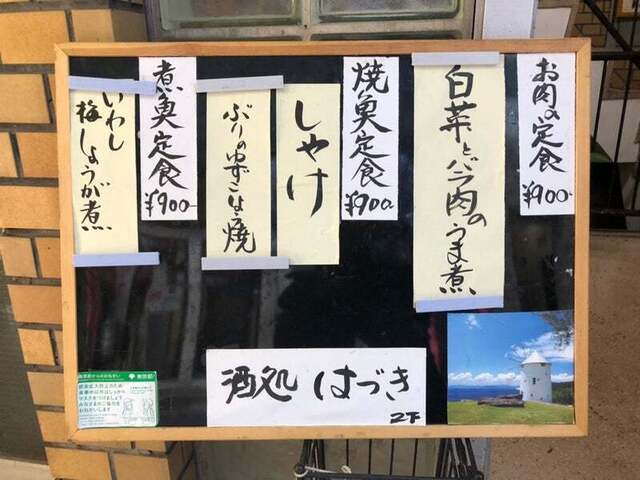 お肉の定食
¥900-
白菜とバラ肉のうま煮
焼魚定食
¥900
しゃけ
ぶりのゆずこしょう焼
煮魚定食
¥900-
いわし
梅しょうが煮
酒処 はづき
2F
東京都